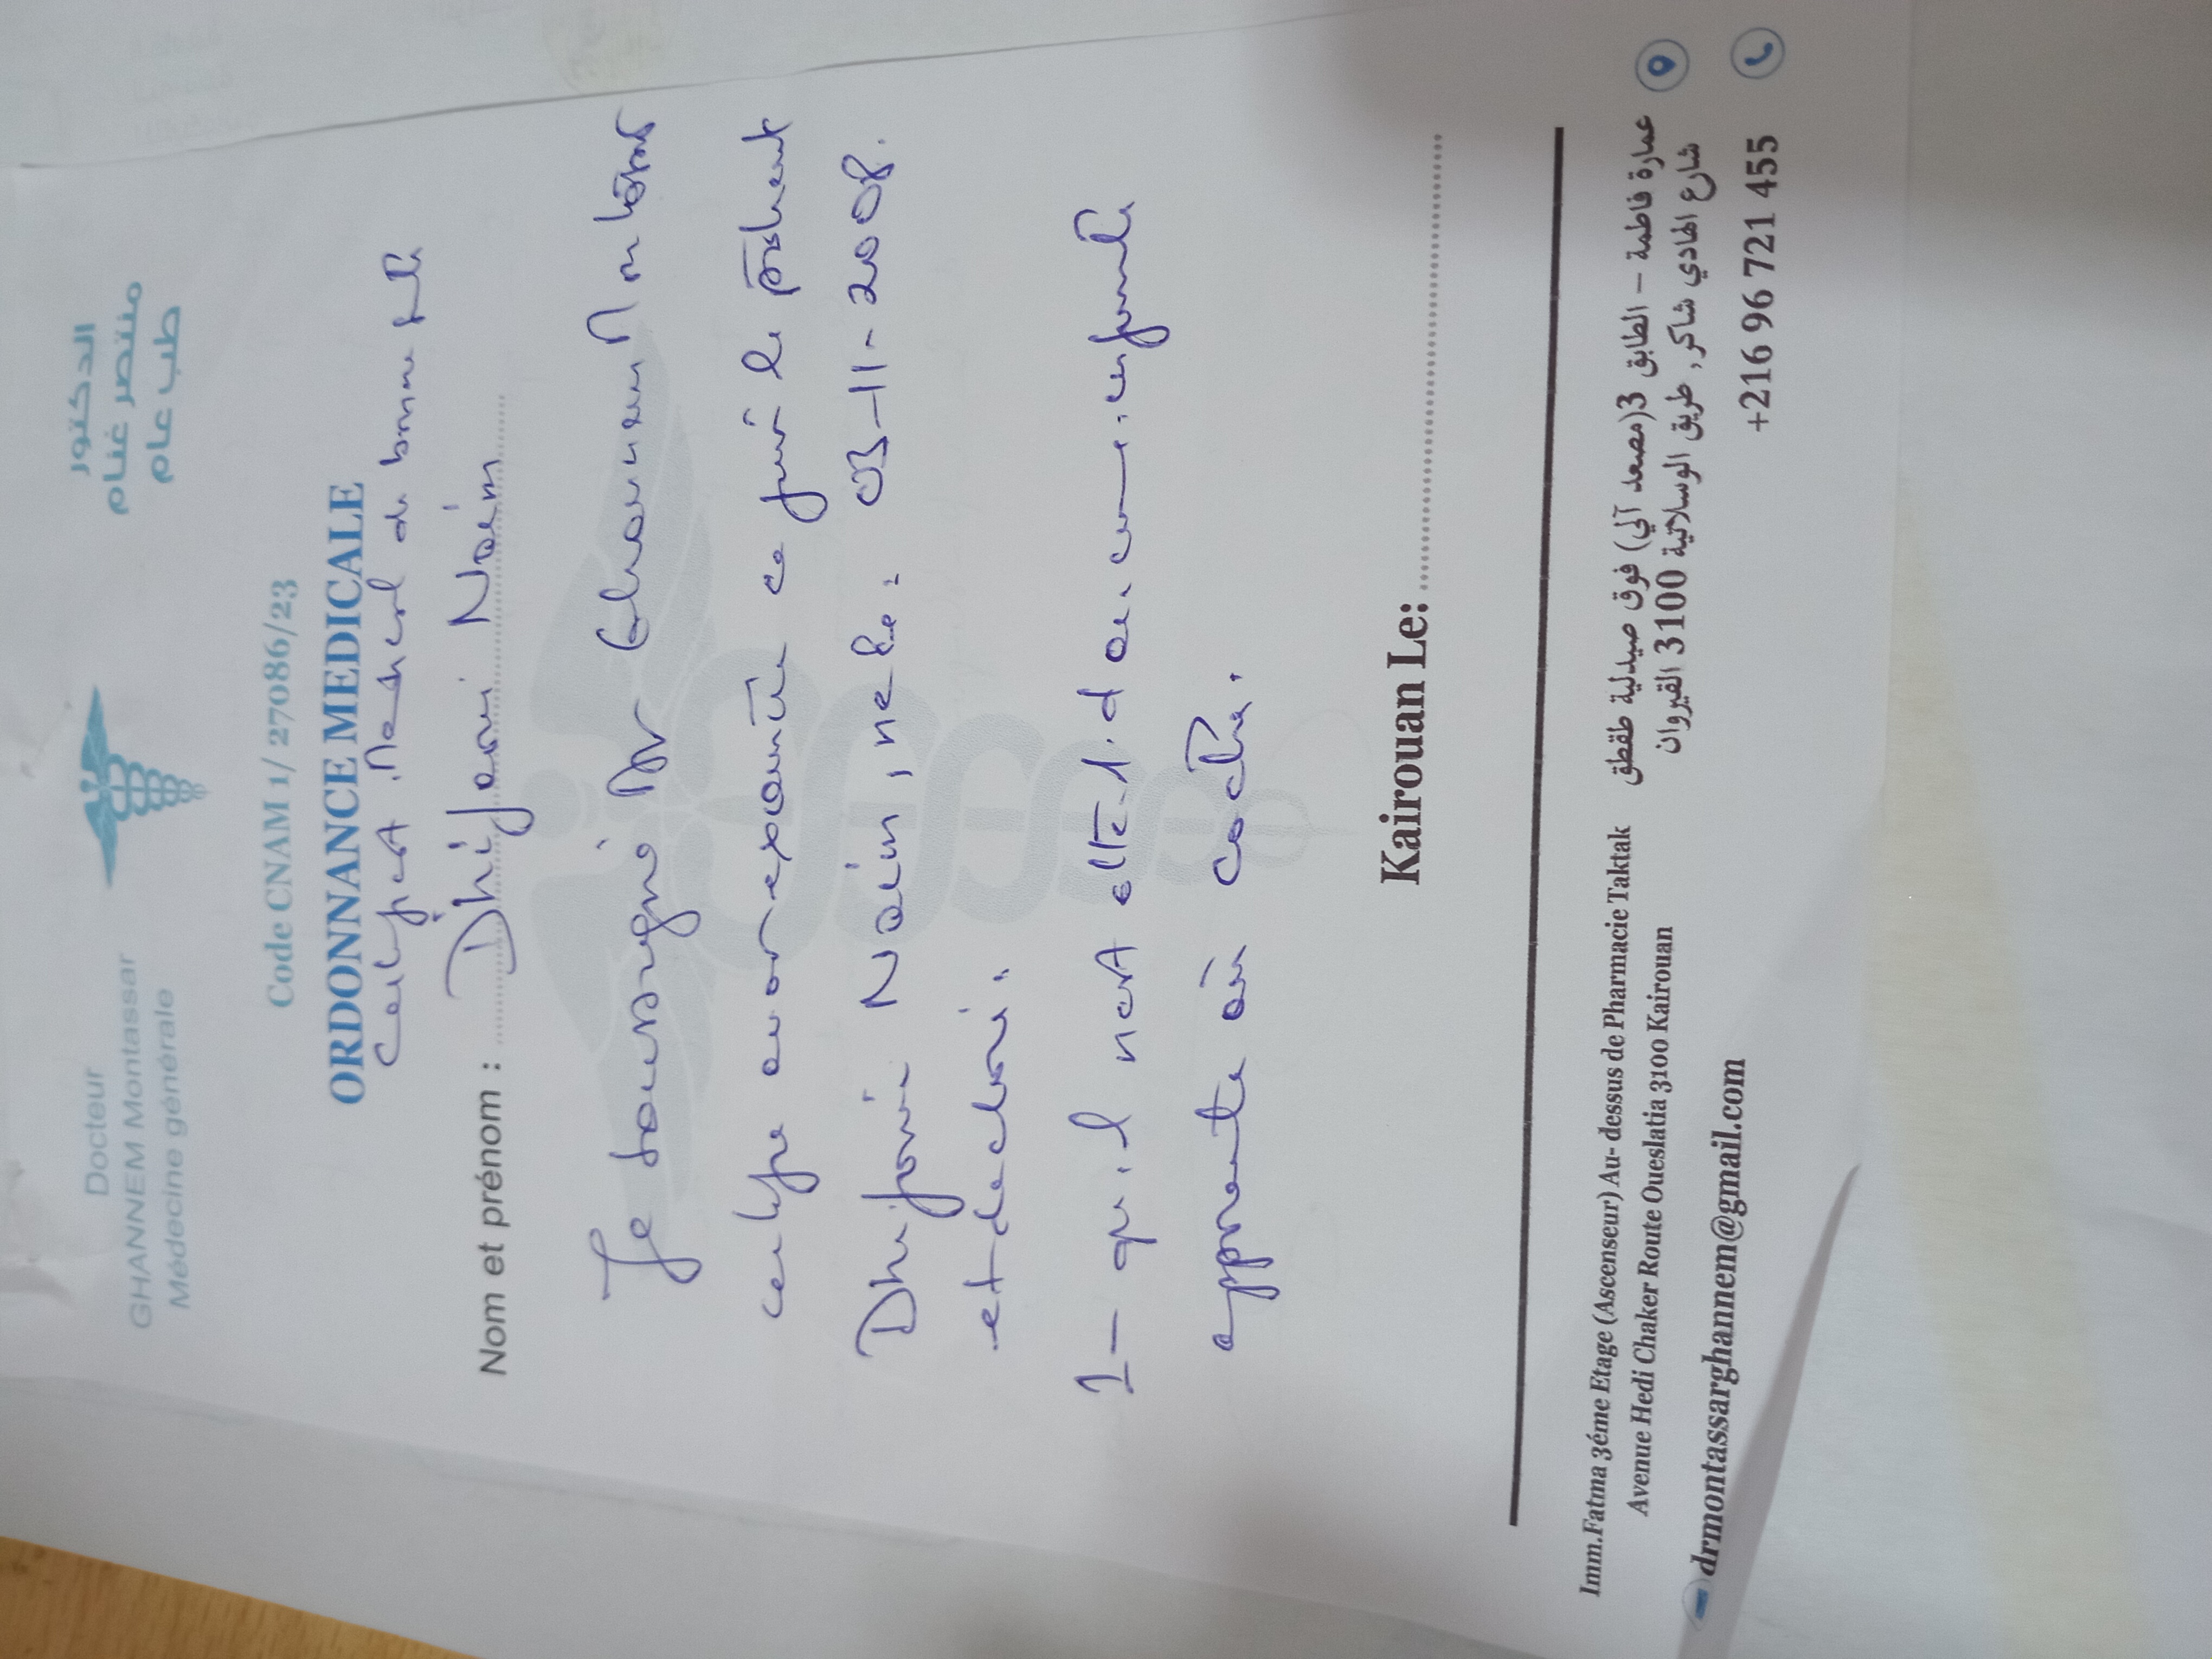 Docteur
GHANNEM Montassar
Médecine générale
الدكتور
منتصر غنام
طب عام
Code CNAM 1/ 27086/23
ORDONNANCE MEDICALE
Certificat Medical de bonne
Nom et prénom : Dhifaoui Naim
Je soussigné Dr Ghannem Montassar
certifie avoir examiné ce jour le patient
Dhifaoui Naim, né le : 03-11-2008.
et declare.
1- qu'il n'est atteint d'aucune infirmité
apparente ou cachée.
Kairouan Le:
Imm.Fatma 3éme Etage (Ascenseur) Au- dessus de Pharmacie Taktak
Avenue Hedi Chaker Route Oueslatia 3100 Kairouan
عمارة فاطمة – الطابق 3(مصعد آلي) فوق صيدلية طقطق
شارع الهادي شاكر, طريق الوسلاتية 3100 القيروان
drmontassarghannem@gmail.com
+216 96 721 455